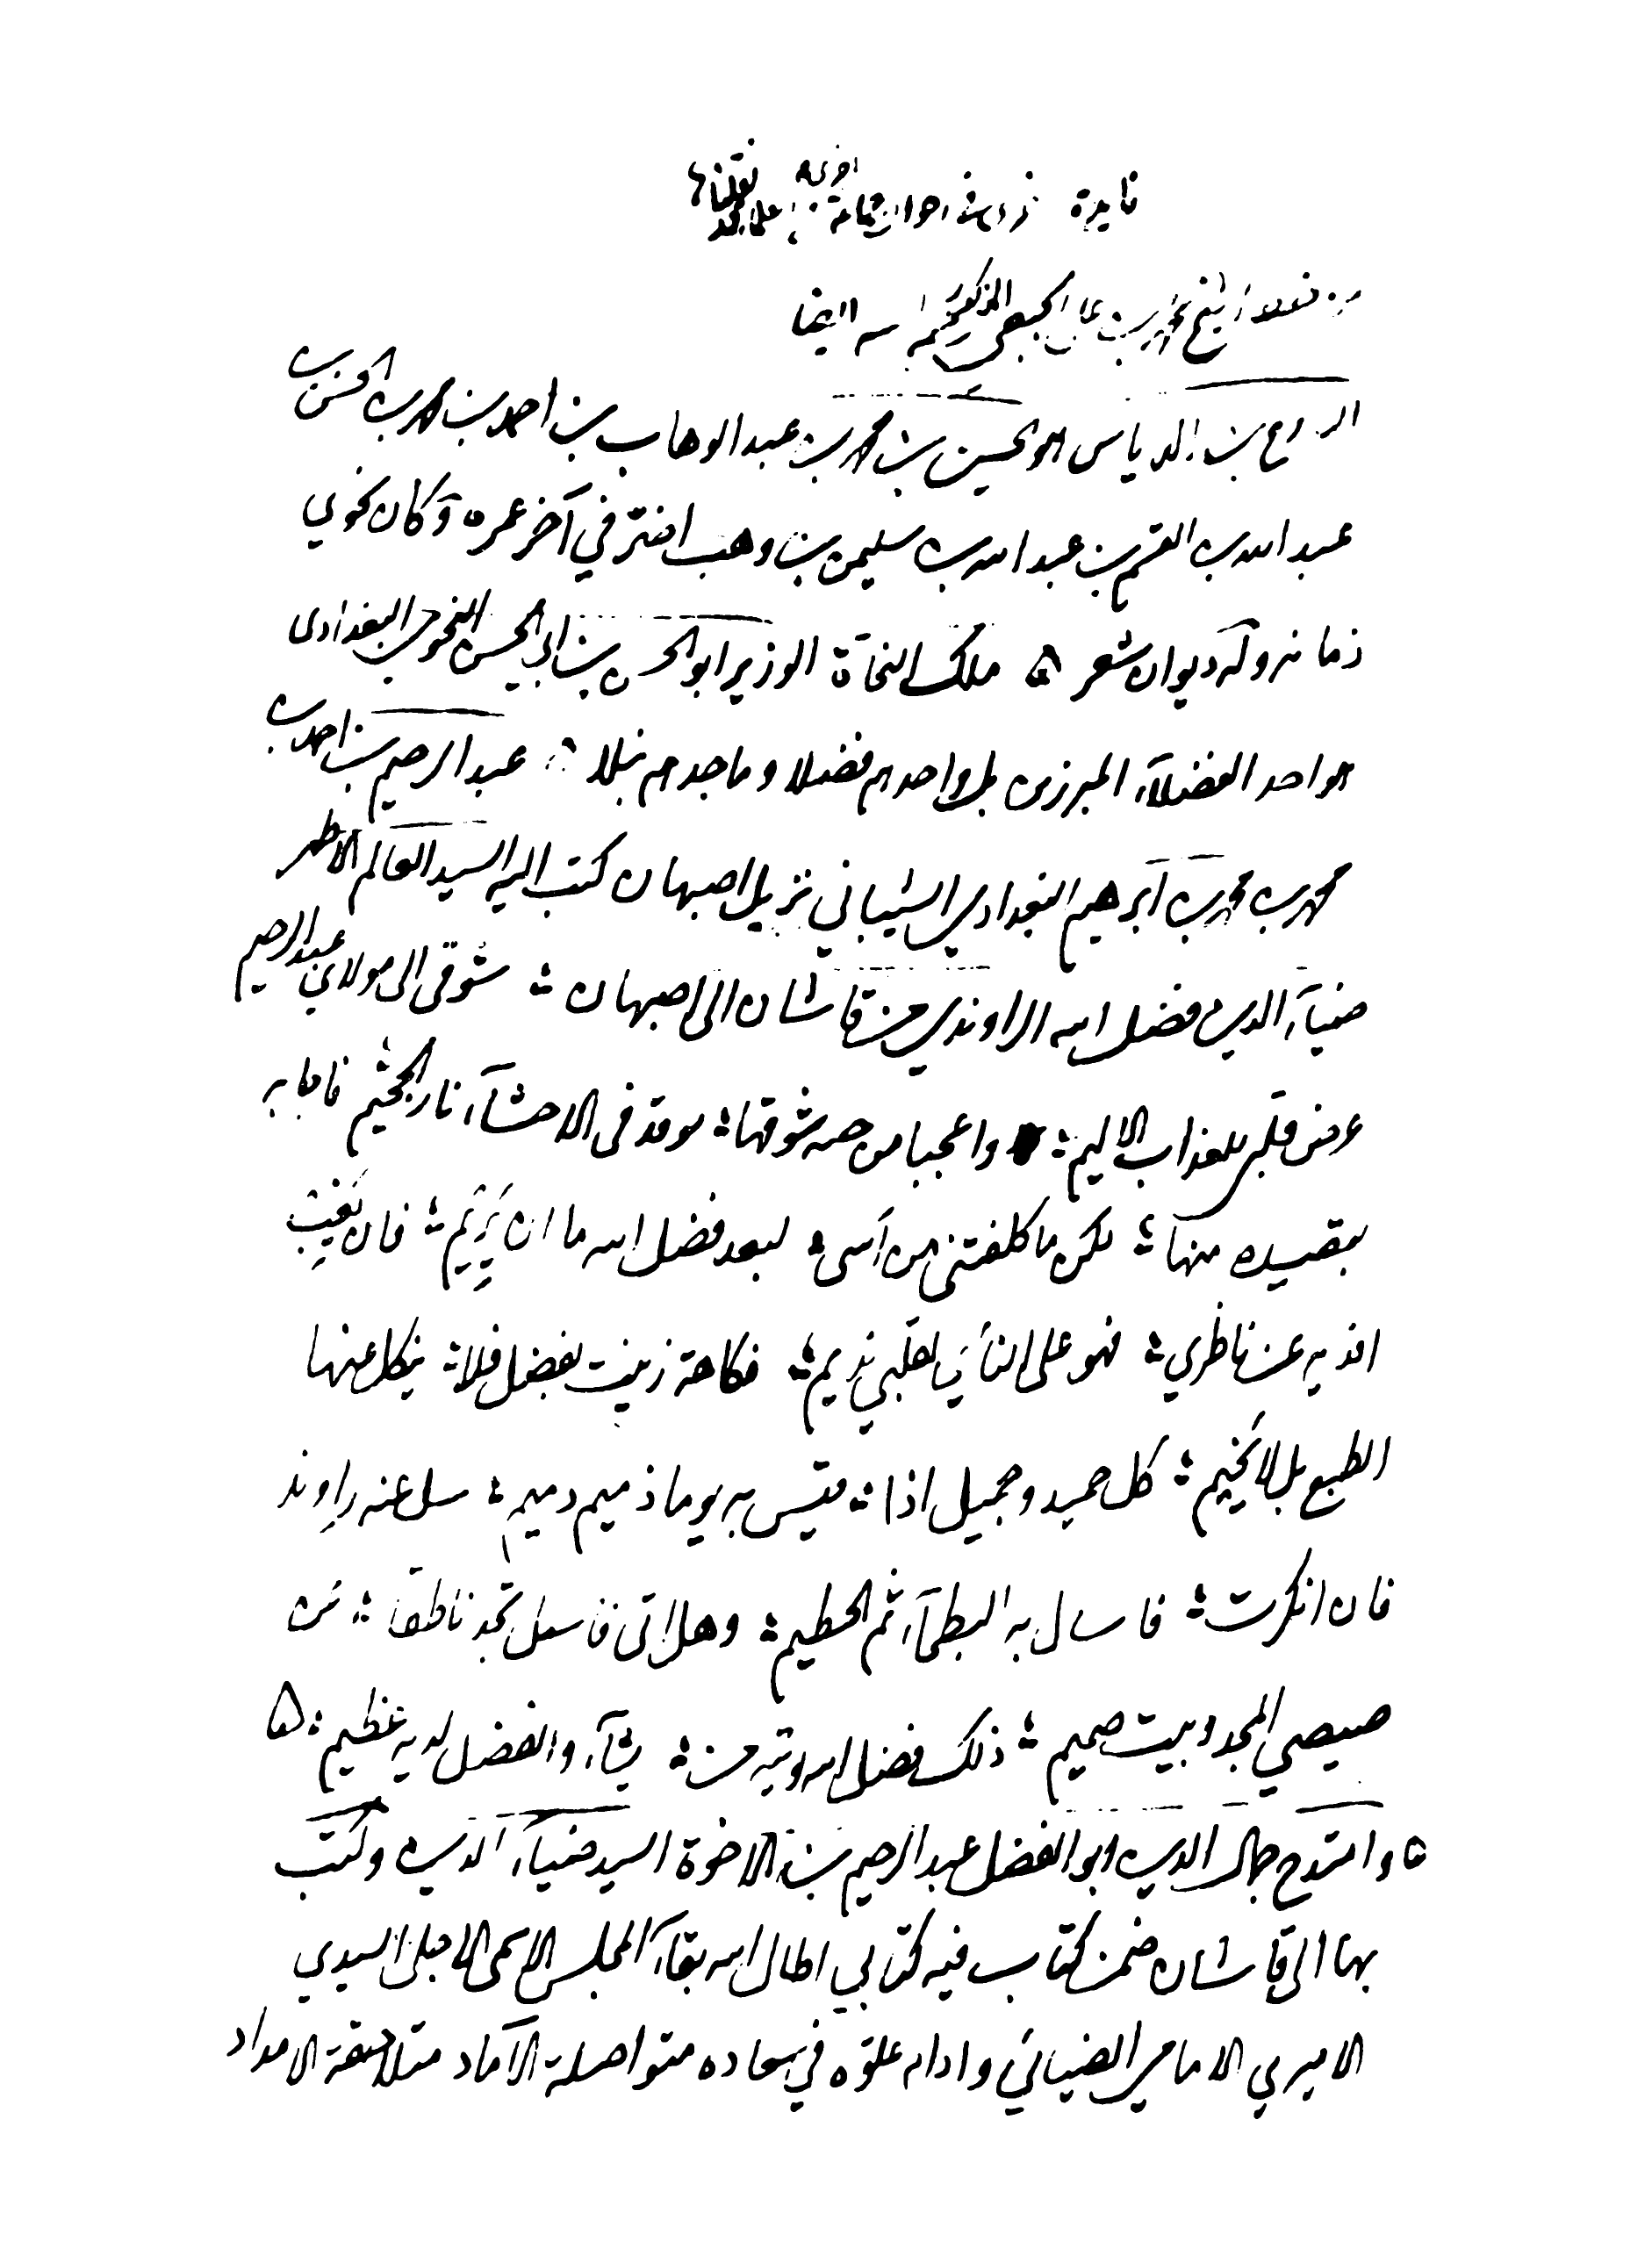 فايدة في احوال جماعة اخرى من العلماء نقلناها
من خط الشيخ محمد بن علي الجبعي المذكور رحمه الله ايضا
البارع بن الدباس هو الحسين بن محمد بن عبد الوهاب بن احمد بن محمد بن الحسين بن
عبد الله بن القسم بن عبد الله بن سليمن بن وهب اضر في آخر عمره وكان نحوي
زمانه وله ديوان شعر ۵ ملك النحاة الوزير ابو الحسن بن ابي الحسن النحوي البغدادي
هو احد الفضلآء المبرزين بل واحدهم فضلا وماجدهم نبلا ۵ عبد الرحيم بن احمد بن
محمد بن محمد بن ابرهيم البغدادي الشيباني نزيل اصبهان كتب اليه السيد العالم الاطهر
ضيآء الدين فضل الله الراوندي من قاشان الى اصبهان ؛ شوقي الى مولاي عبد الرحيم
عرض قلبي للعذاب الاليم ؛ واعجبا من جنة شوقها ؛ يوقد في الاحشآء نار الجحيم فاجابه
بقصيده منها ؛ لكن ما كلفتني من أسى ؛ لبعد فضل الله ما ان يَرِيم ؛ فان يَغِب
افديه عن ناظري ؛ فهو على النأي لقلبي نديم ؛ فكاهة زينت بفضل فلا ؛ ينكل عنها
الطبع بل لا يَخِيم ؛ كل حميد وجميل اذا ؛ قيس به يوما ذميم دميم ؛ سل عنه راوند
فان انكرت ؛ فاسال به البطحآء ثم الحطيم ؛ وهل اتى فاسئل تجد ناطقا ؛ من
صميصي المجد وبيت صميم ؛ ذلك فضل الله يؤتيه من ؛ يشآء والفضل لديه عظيم ؛ ۵
۵ وامتدح جمال الدين ابو الفضل عبد الرحيم بن الاخوة السيد ضيآء الدين وكتب
بها الى قاشان ضمن كتاب فيه كتابي اطال الله بقآء المجلس الاسمى الاجلى السيدي
الاميري الامامي الضيائي وادام علوّه في سعاده متواصلة الآماد متلاحقة الامداد